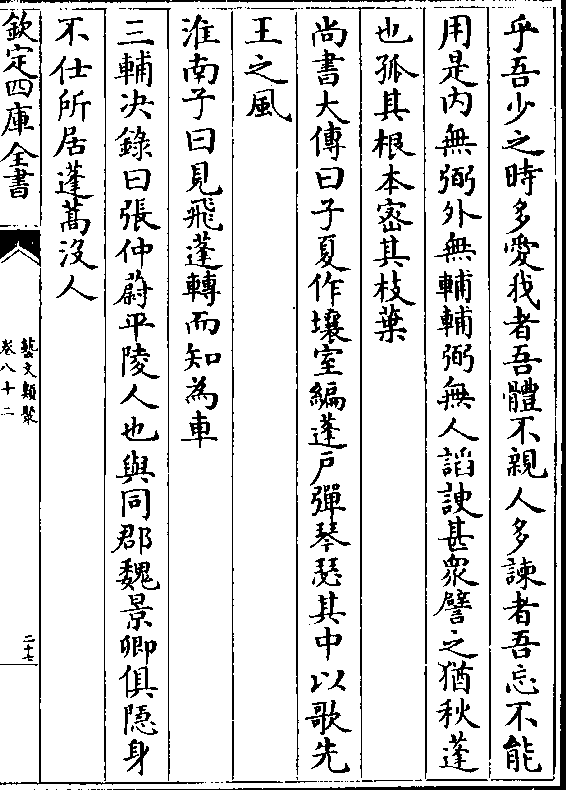 乎吾少之時多愛我者吾體不親人多諫者吾忘不能
用是内無弼外無輔輔弼無人謟諛甚衆譬之猶秋蓬
也孤其根本密其枝葉
尚書大傳曰子夏作壤室編蓬戸彈琴瑟其中以歌先
王之風
淮南子曰見飛蓬轉而知為車
三輔决錄曰張仲蔚平陵人也與同郡魏景卿俱隱身
不仕所居蓬蒿沒人
欽定四庫全書
藝文類聚
卷八十二
二十七